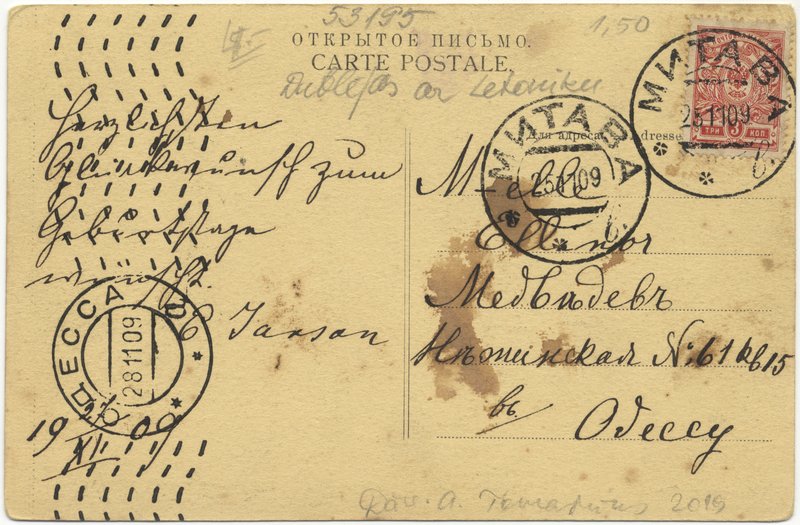 53195
1,50
ОТКРЫТОЕ ПИСЬМО.
CARTE POSTALE.
Dublejas ar Latviešu
Для адреса. Adresse.
МИТАВА
25 11 09
б.
МИТАВА
25 11 09
а б.
ТРИ 3 КОП
Herzlichsten
Glückwunsch zum
Geburtstage
wünscht.
E Janson
ОДЕССА
28 11 09
19 27/XI 09
M-elle
Ellinor
Медвѣдевъ
Нѣжинская №: 61 кв 15
въ Одессу
2015